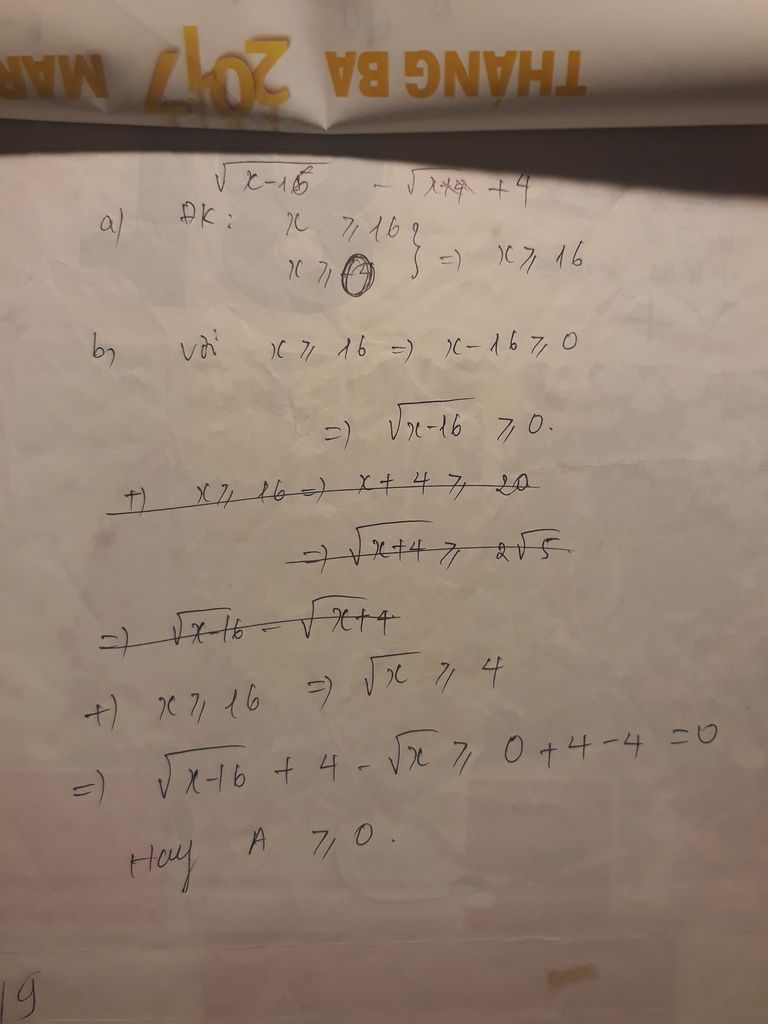 THÁNG BA 2017 MAR
√(x-16) - √x + 4
a) ĐK: x ≥ 16
x ≥ 0 } => x ≥ 16
b, với x ≥ 16 => x-16 ≥ 0
=> √(x-16) ≥ 0.
+) x ≥ 16 => x + 4 ≥ 20
=> √(x+4) ≥ 2√5
=> √(x-16) - √(x+4)
+) x ≥ 16 => √x ≥ 4
=> √(x-16) + 4 - √x ≥ 0 + 4 - 4 = 0
Hay A ≥ 0.
19